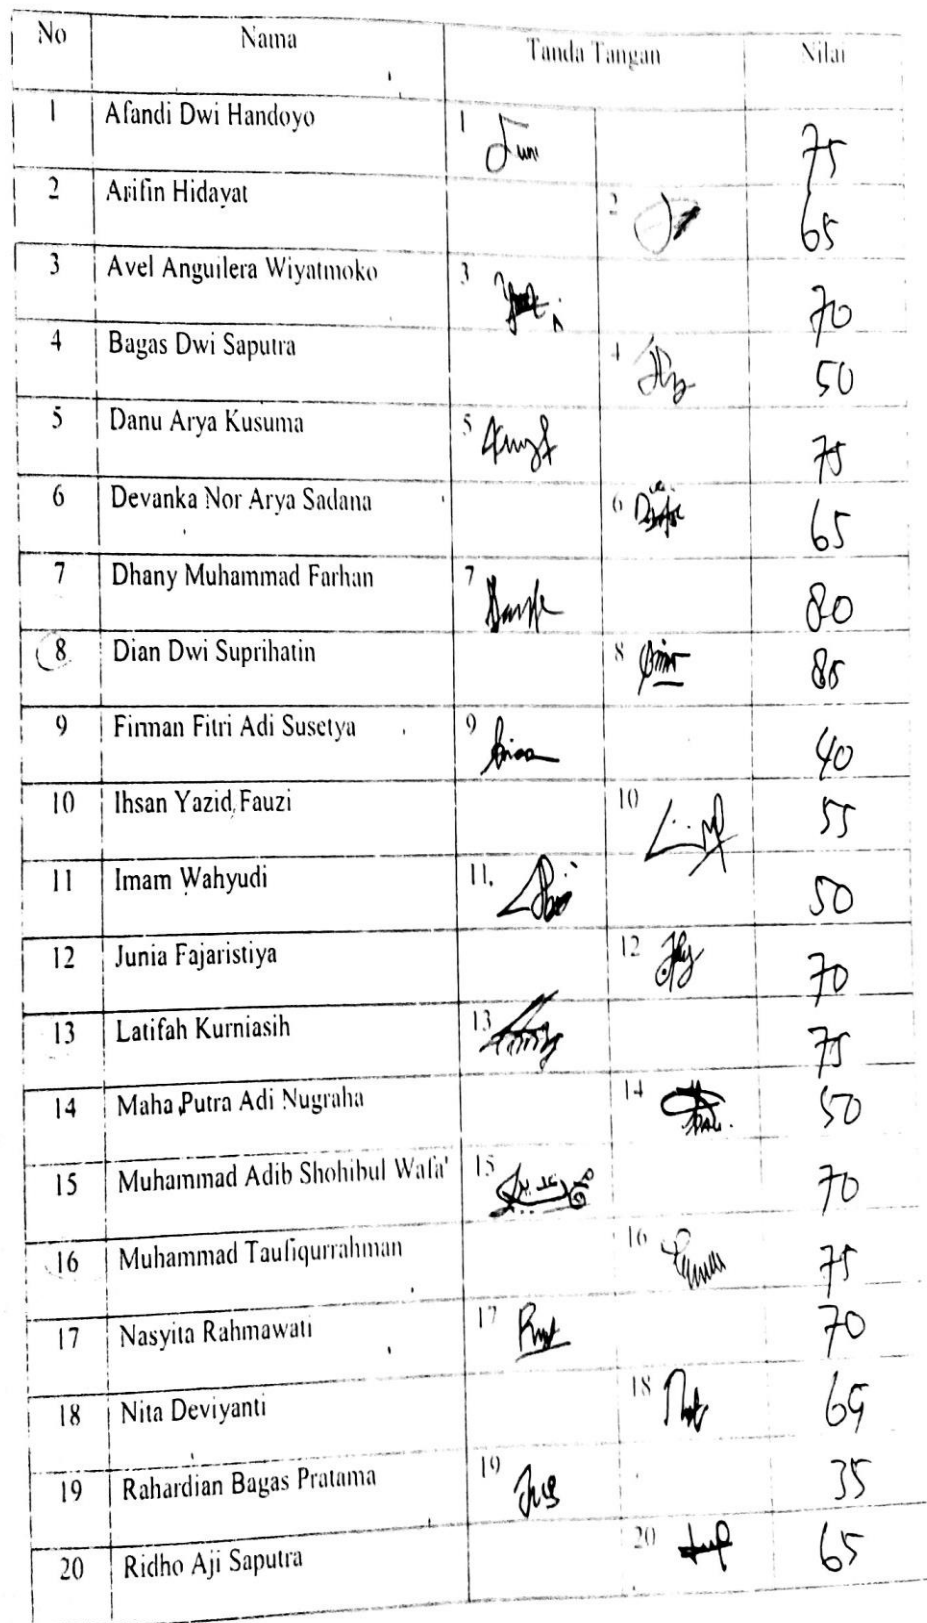 No Nama Tanda Tangan Nilai
1 Afandi Dwi Handoyo 1 75
2 Arifin Hidayat 2 65
3 Avel Anguilera Wiyatmoko 3 70
4 Bagas Dwi Saputra 4 50
5 Danu Arya Kusuma 5 75
6 Devanka Nor Arya Sadana 6 65
7 Dhany Muhammad Farhan 7 80
8 Dian Dwi Suprihatin 8 85
9 Firman Fitri Adi Susetya 9 40
10 Ihsan Yazid Fauzi 10 55
11 Imam Wahyudi 11. 50
12 Junia Fajaristiya 12 70
13 Latifah Kurniasih 13 75
14 Maha Putra Adi Nugraha 14 50
15 Muhammad Adib Shohibul Wafa' 15 70
16 Muhammad Taufiqurrahman 16 75
17 Nasyita Rahmawati 17 70
18 Nita Deviyanti 18
19 Rahardian Bagas Pratama 19 35
20 Ridho Aji Saputra 20 65